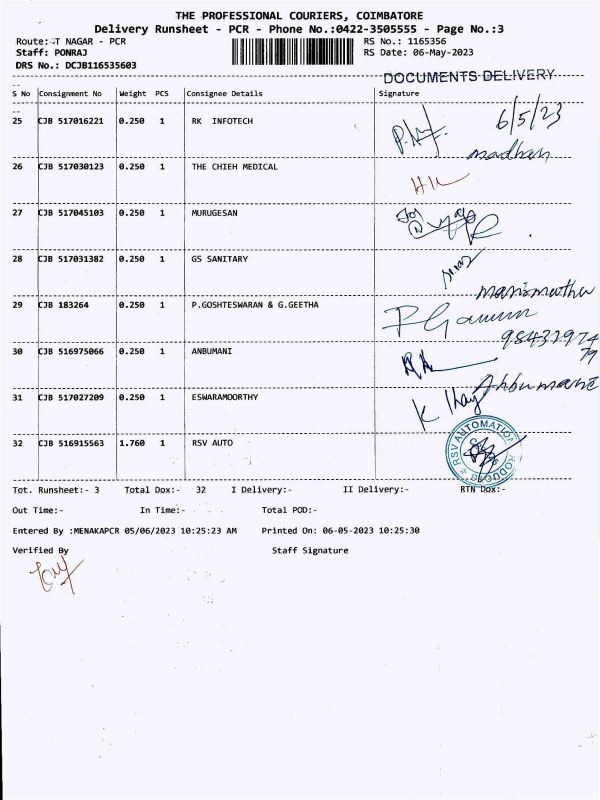 THE PROFESSIONAL COURIERS, COIMBATORE
Delivery Runsheet - PCR - Phone No.:0422-3505555 - Page No.:3
Route:-T NAGAR - PCR RS No.: 1165356
Staff: PONRAJ RS Date: 06-May-2023
DRS No.: DCJB116535603
DOCUMENTS DELIVERY
S No Consignment No Weight PCS Consignee Details Signature
25 CJB 517016221 0.250 1 RK INFOTECH 6/5/23
madhan
26 CJB 517030123 0.250 1 THE CHIEH MEDICAL
27 CJB 517045103 0.250 1 MURUGESAN
28 CJB 517031382 0.250 1 GS SANITARY
manimuthu
29 CJB 183264 0.250 1 P.GOSHTESWARAN & G.GEETHA
30 CJB 516975066 0.250 1 ANBUMANI
Anbumani
31 CJB 517027209 0.250 1 ESWARAMOORTHY
32 CJB 516915563 1.760 1 RSV AUTO
RSV AUTOMATION PRODUCTS
Tot. Runsheet:- 3 Total Dox:- 32 I Delivery:- II Delivery:- RTN Dox:-
Out Time:- In Time:- Total POD:-
Entered By :MENAKAPCR 05/06/2023 10:25:23 AM Printed On: 06-05-2023 10:25:30
Verified By Staff Signature